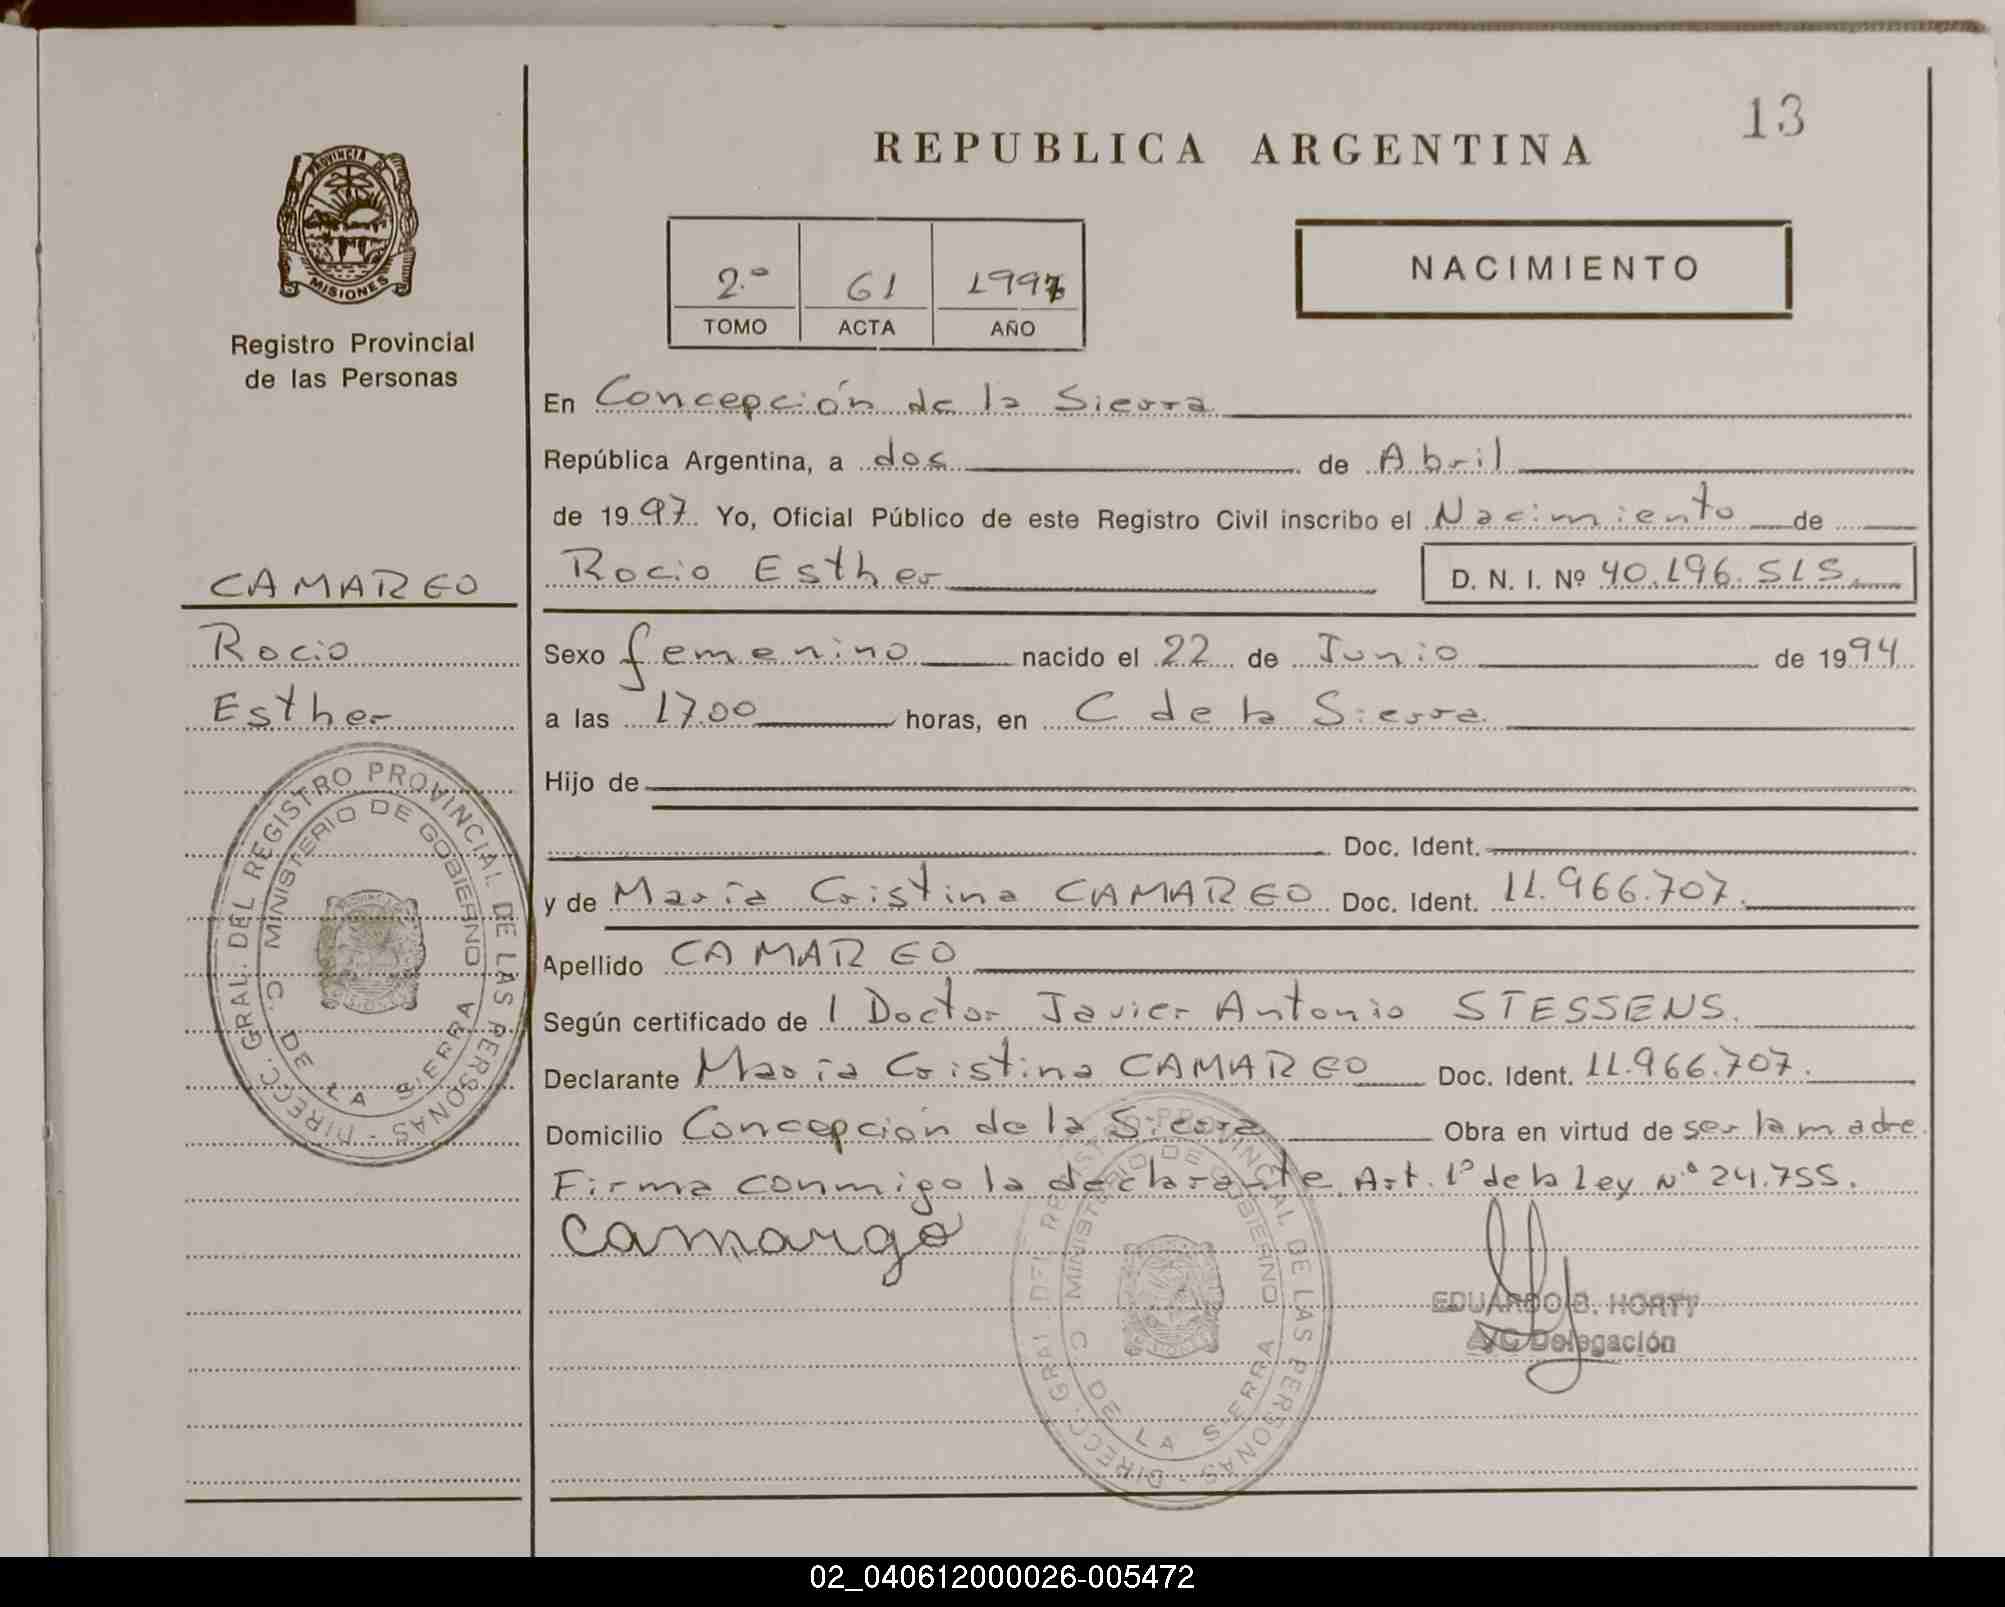 13
REPUBLICA ARGENTINA
PROVINCIA DE
MISIONES
Registro Provincial
de las Personas
2.º 61 1997
TOMO ACTA AÑO
NACIMIENTO
En Concepción de la Sierra
República Argentina, a dos de Abril
de 1997 Yo, Oficial Público de este Registro Civil inscribo el Nacimiento de
CAMARGO
Rocio Esther D. N. I. Nº 40.196.515
Rocio
Esther
Sexo femenino nacido el 22 de Junio de 1994
a las 17.00 horas, en C de la Sierra
Hijo de
Doc. Ident.
y de María Cristina CAMARGO Doc. Ident. 11.966.707.
Apellido CAMARGO
Según certificado de l Doctor Javier Antonio STESSENS.
Declarante María Cristina CAMARGO Doc. Ident. 11.966.707.
Domicilio Concepción de la Sierra Obra en virtud de ser la madre.
Firma conmigo la declarante Art. 1º de la Ley Nº 24.755.
Camargo
EDUARDO B. HORTY
A/C Delegación
DIRECC. GRAL. DEL REGISTRO PROVINCIAL DE LAS PERSONAS
MINISTERIO DE GOBIERNO
C. DE LA SIERRA
DIRECC. GRAL. DEL REGISTRO PROVINCIAL DE LAS PERSONAS
MINISTERIO DE GOBIERNO
C. DE LA SIERRA
02_040612000026-005472